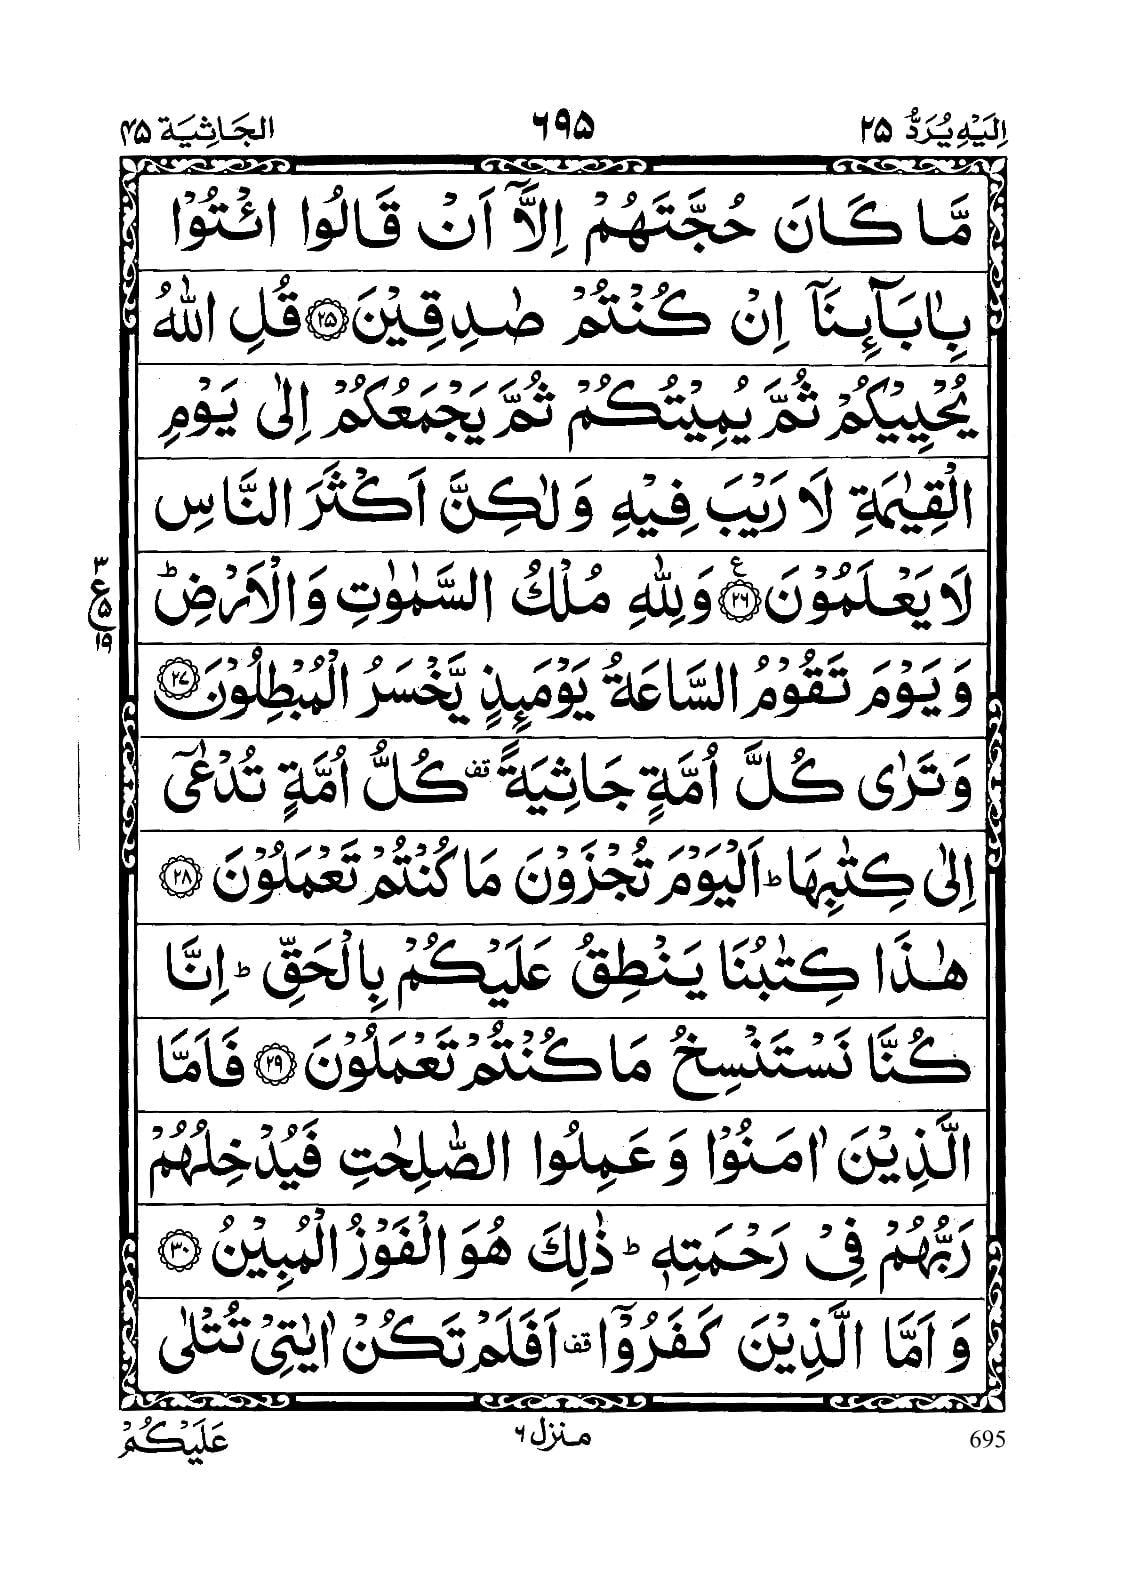 اِلَيْهِ يُرَدُّ ٢٥
٦٩٥
الجَاثِيَة ٤٥
مَّا كَانَ حُجَّتَهُمْ اِلَّاۤ اَنْ قَالُوا ائْتُوْا
بِاٰبَآىِٕنَاۤ اِنْ كُنْتُمْ صٰدِقِيْنَ ٢٥ قُلِ اللّٰهُ
يُحْيِيْكُمْ ثُمَّ يُمِيْتُكُمْ ثُمَّ يَجْمَعُكُمْ اِلٰى يَوْمِ
الْقِيٰمَةِ لَا رَيْبَ فِيْهِ وَلٰكِنَّ اَكْثَرَ النَّاسِ
لَا يَعْلَمُوْنَ ٢٦ ع وَلِلّٰهِ مُلْكُ السَّمٰوٰتِ وَالْاَرْضِ ؕ
٣
ع ٥
١٩
وَيَوْمَ تَقُوْمُ السَّاعَةُ يَوْمَىِٕذٍ يَّخْسَرُ الْمُبْطِلُوْنَ ٢٧
وَتَرٰى كُلَّ اُمَّةٍ جَاثِيَةً قف كُلُّ اُمَّةٍ تُدْعٰۤى
اِلٰى كِتٰبِهَا ؕ اَلْيَوْمَ تُجْزَوْنَ مَا كُنْتُمْ تَعْمَلُوْنَ ٢٨
هٰذَا كِتٰبُنَا يَنْطِقُ عَلَيْكُمْ بِالْحَقِّ ؕ اِنَّا
كُنَّا نَسْتَنْسِخُ مَا كُنْتُمْ تَعْمَلُوْنَ ٢٩ فَاَمَّا
الَّذِيْنَ اٰمَنُوْا وَعَمِلُوا الصّٰلِحٰتِ فَيُدْخِلُهُمْ
رَبُّهُمْ فِيْ رَحْمَتِهٖ ؕ ذٰلِكَ هُوَ الْفَوْزُ الْمُبِيْنُ ٣٠
وَاَمَّا الَّذِيْنَ كَفَرُوْۤا قف اَفَلَمْ تَكُنْ اٰيٰتِيْ تُتْلٰى
عَلَيْكُمْ
منزل ٦
695